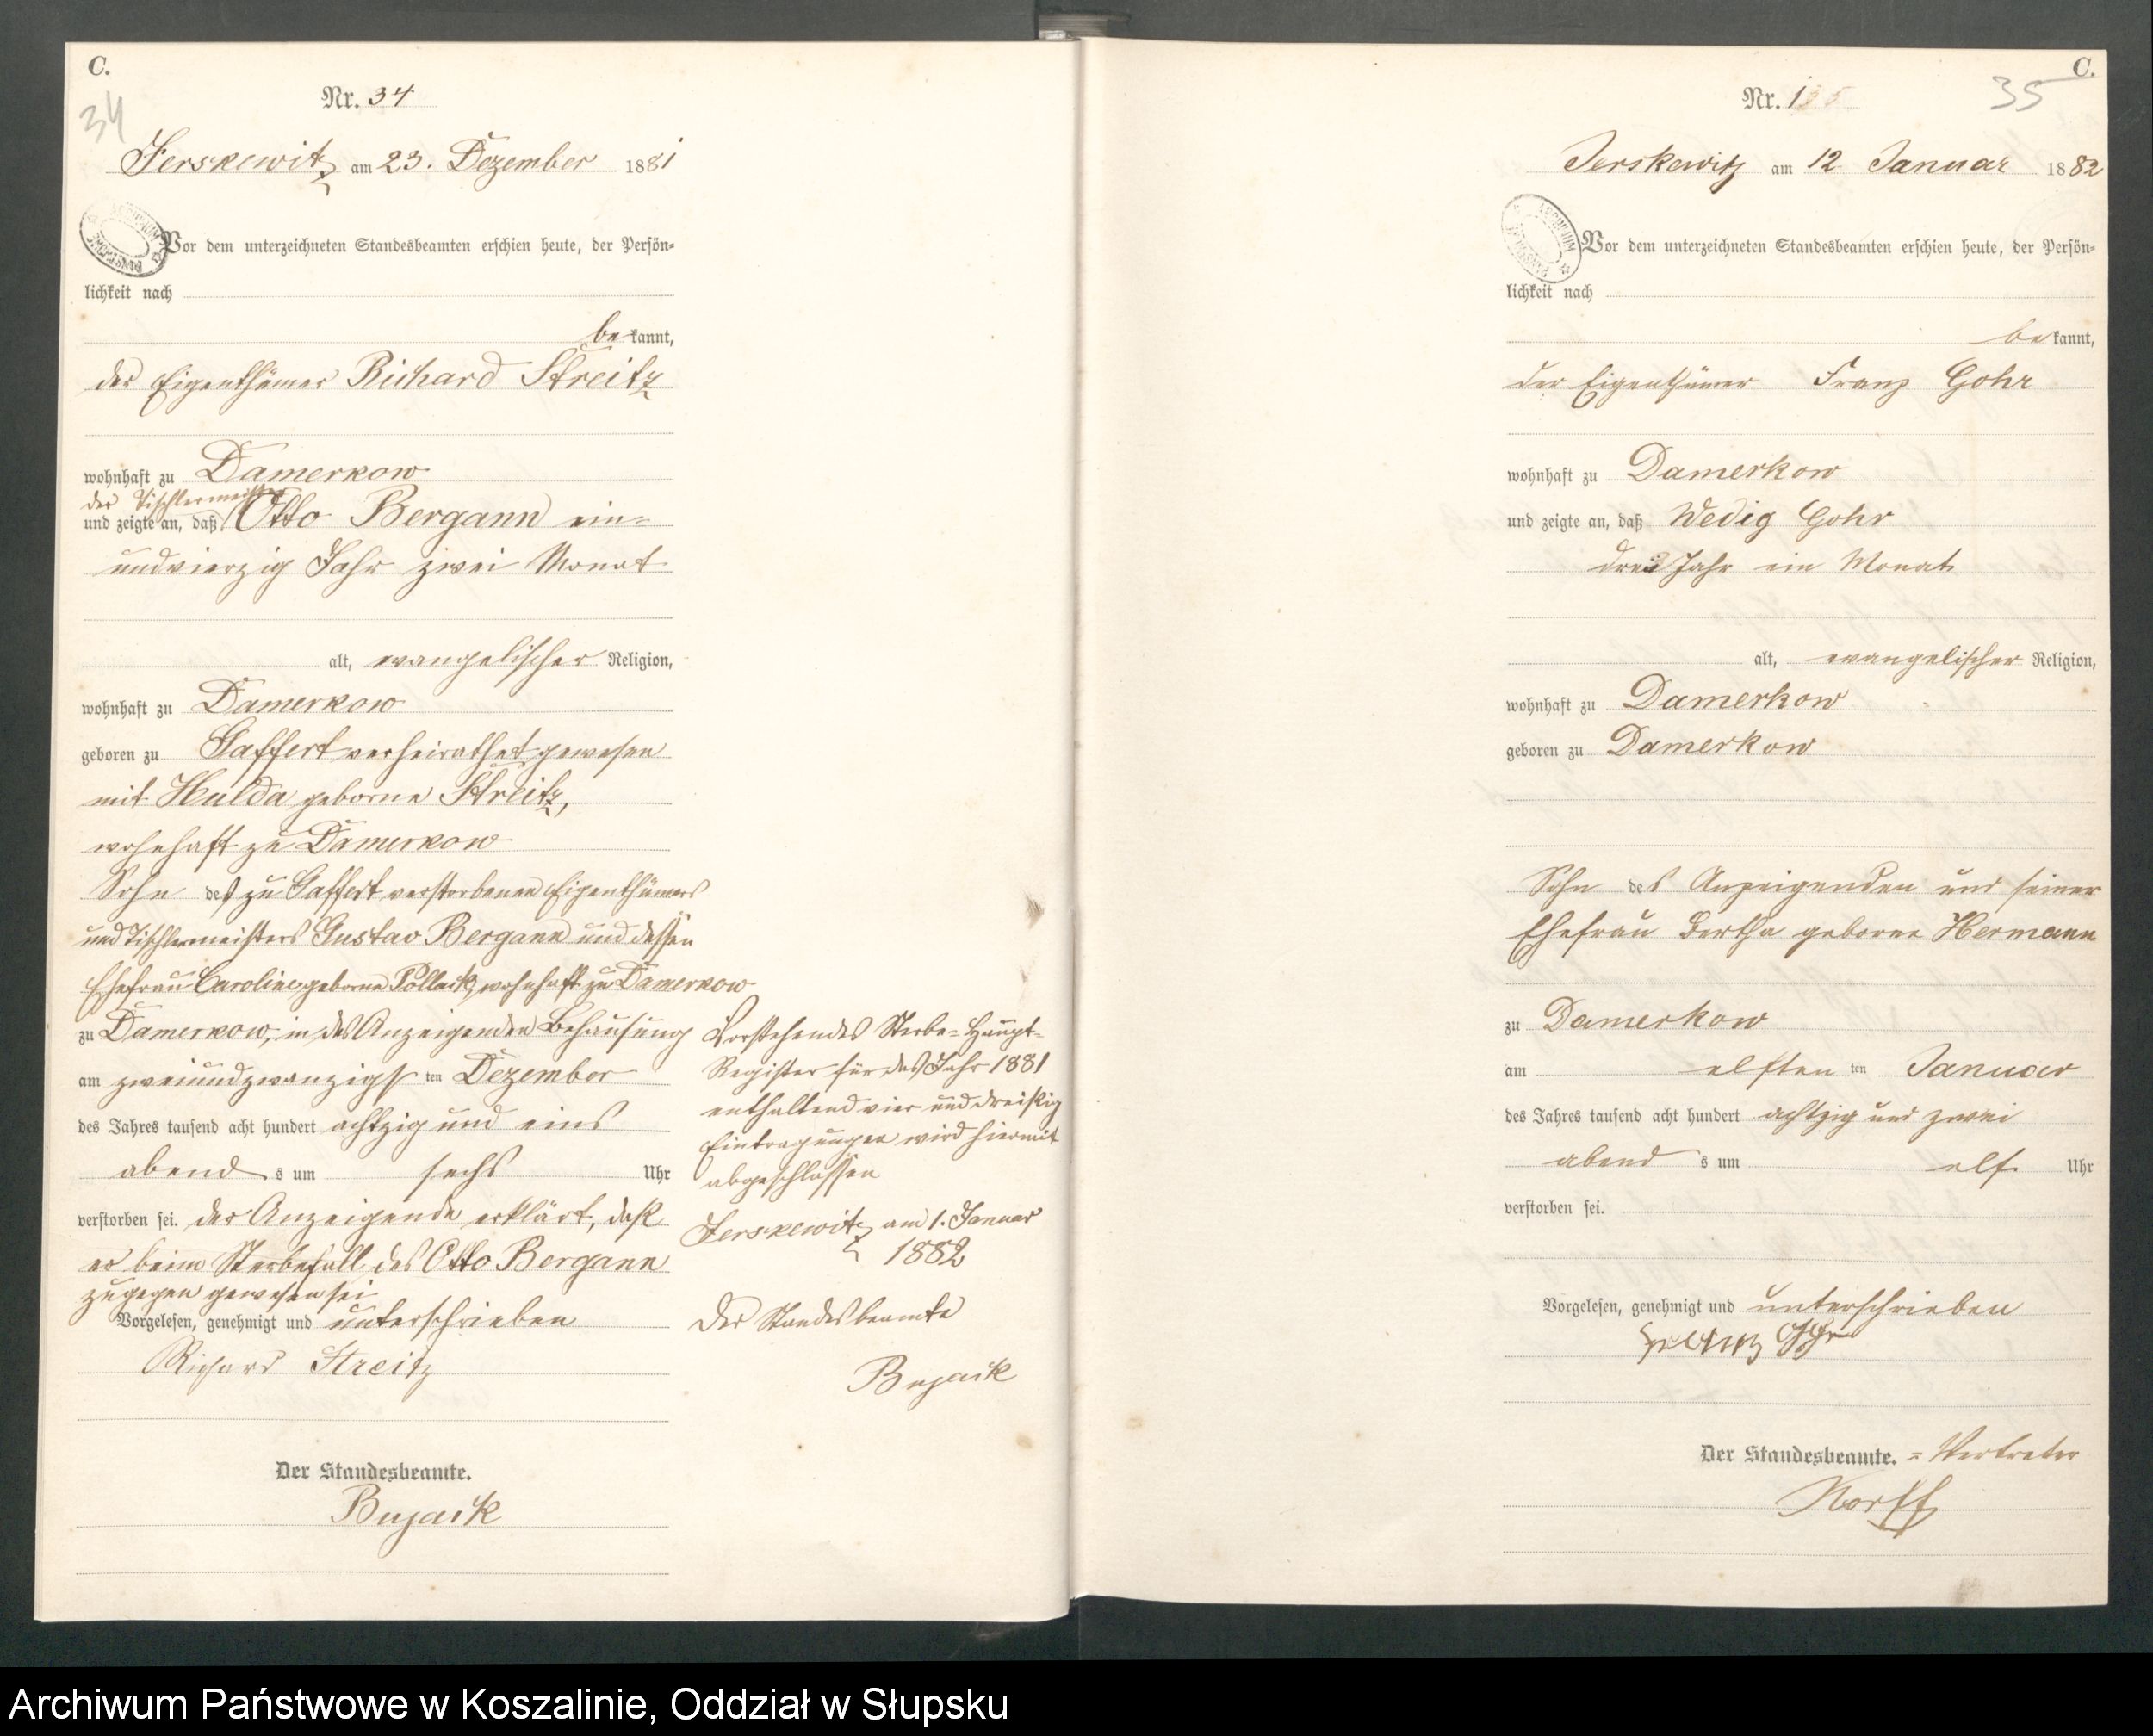 C.
34
Nr. 34
Jerskewitz am 23. Dezember 1881
Vor dem unterzeichneten Standesbeamten erschien heute, der Persön=
lichkeit nach
bekannt,
der Eigenthümer Richard Streitz
wohnhaft zu Damerkow
der Tischlermeister
und zeigte an, daß Otto Bergann ein=
undvierzig Jahr zwei Monat
alt, evangelischer Religion,
wohnhaft zu Damerkow
geboren zu Gaffert verheirathet gewesen
mit Hulda geborne Streitz,
wohnhaft zu Damerkow
Sohn des zu Gaffert verstorbenen Eigenthümers
und Tischlermeisters Gustav Bergann und dessen
Ehefrau Caroline geborne Pollack, wohnhaft zu Damerkow
zu Damerkow, in des Anzeigenden Behausung
am zweiundzwanzigsten Dezember
des Jahres tausend acht hundert achtzig und eins
abends um sechs Uhr
verstorben sei. der Anzeigende erklärt, daß
er beim Sterbefall des Otto Bergann
zugegen gewesen sei
Vorgelesen, genehmigt und unterschrieben
Richard Streitz
Der Standesbeamte.
Bujack
Vorstehendes Sterbe=Haupt=
Register für das Jahr 1881
enthaltend vier und dreißig
Eintragungen wird hiermit
abgeschlossen
Jerskewitz am 1. Januar
1882
Der Standesbeamte
Bujack
C.
35
Nr. 1
Jerskewitz am 12 Januar 1882
Vor dem unterzeichneten Standesbeamten erschien heute, der Persön=
lichkeit nach
bekannt,
der Eigenthümer Franz Gohr
wohnhaft zu Damerkow
und zeigte an, daß Wedig Gohr
drei Jahr ein Monat
alt, evangelischer Religion,
wohnhaft zu Damerkow
geboren zu Damerkow
Sohn des Anzeigenden und seiner
Ehefrau Bertha geborne Hermann
zu Damerkow
am elften ten Januar
des Jahres tausend acht hundert achtzig und zwei
abends um elf Uhr
verstorben sei.
Vorgelesen, genehmigt und unterschrieben
Franz Gohr
Der Standesbeamte. = Vertreter
Norff
Archiwum Państwowe w Koszalinie, Oddział w Słupsku